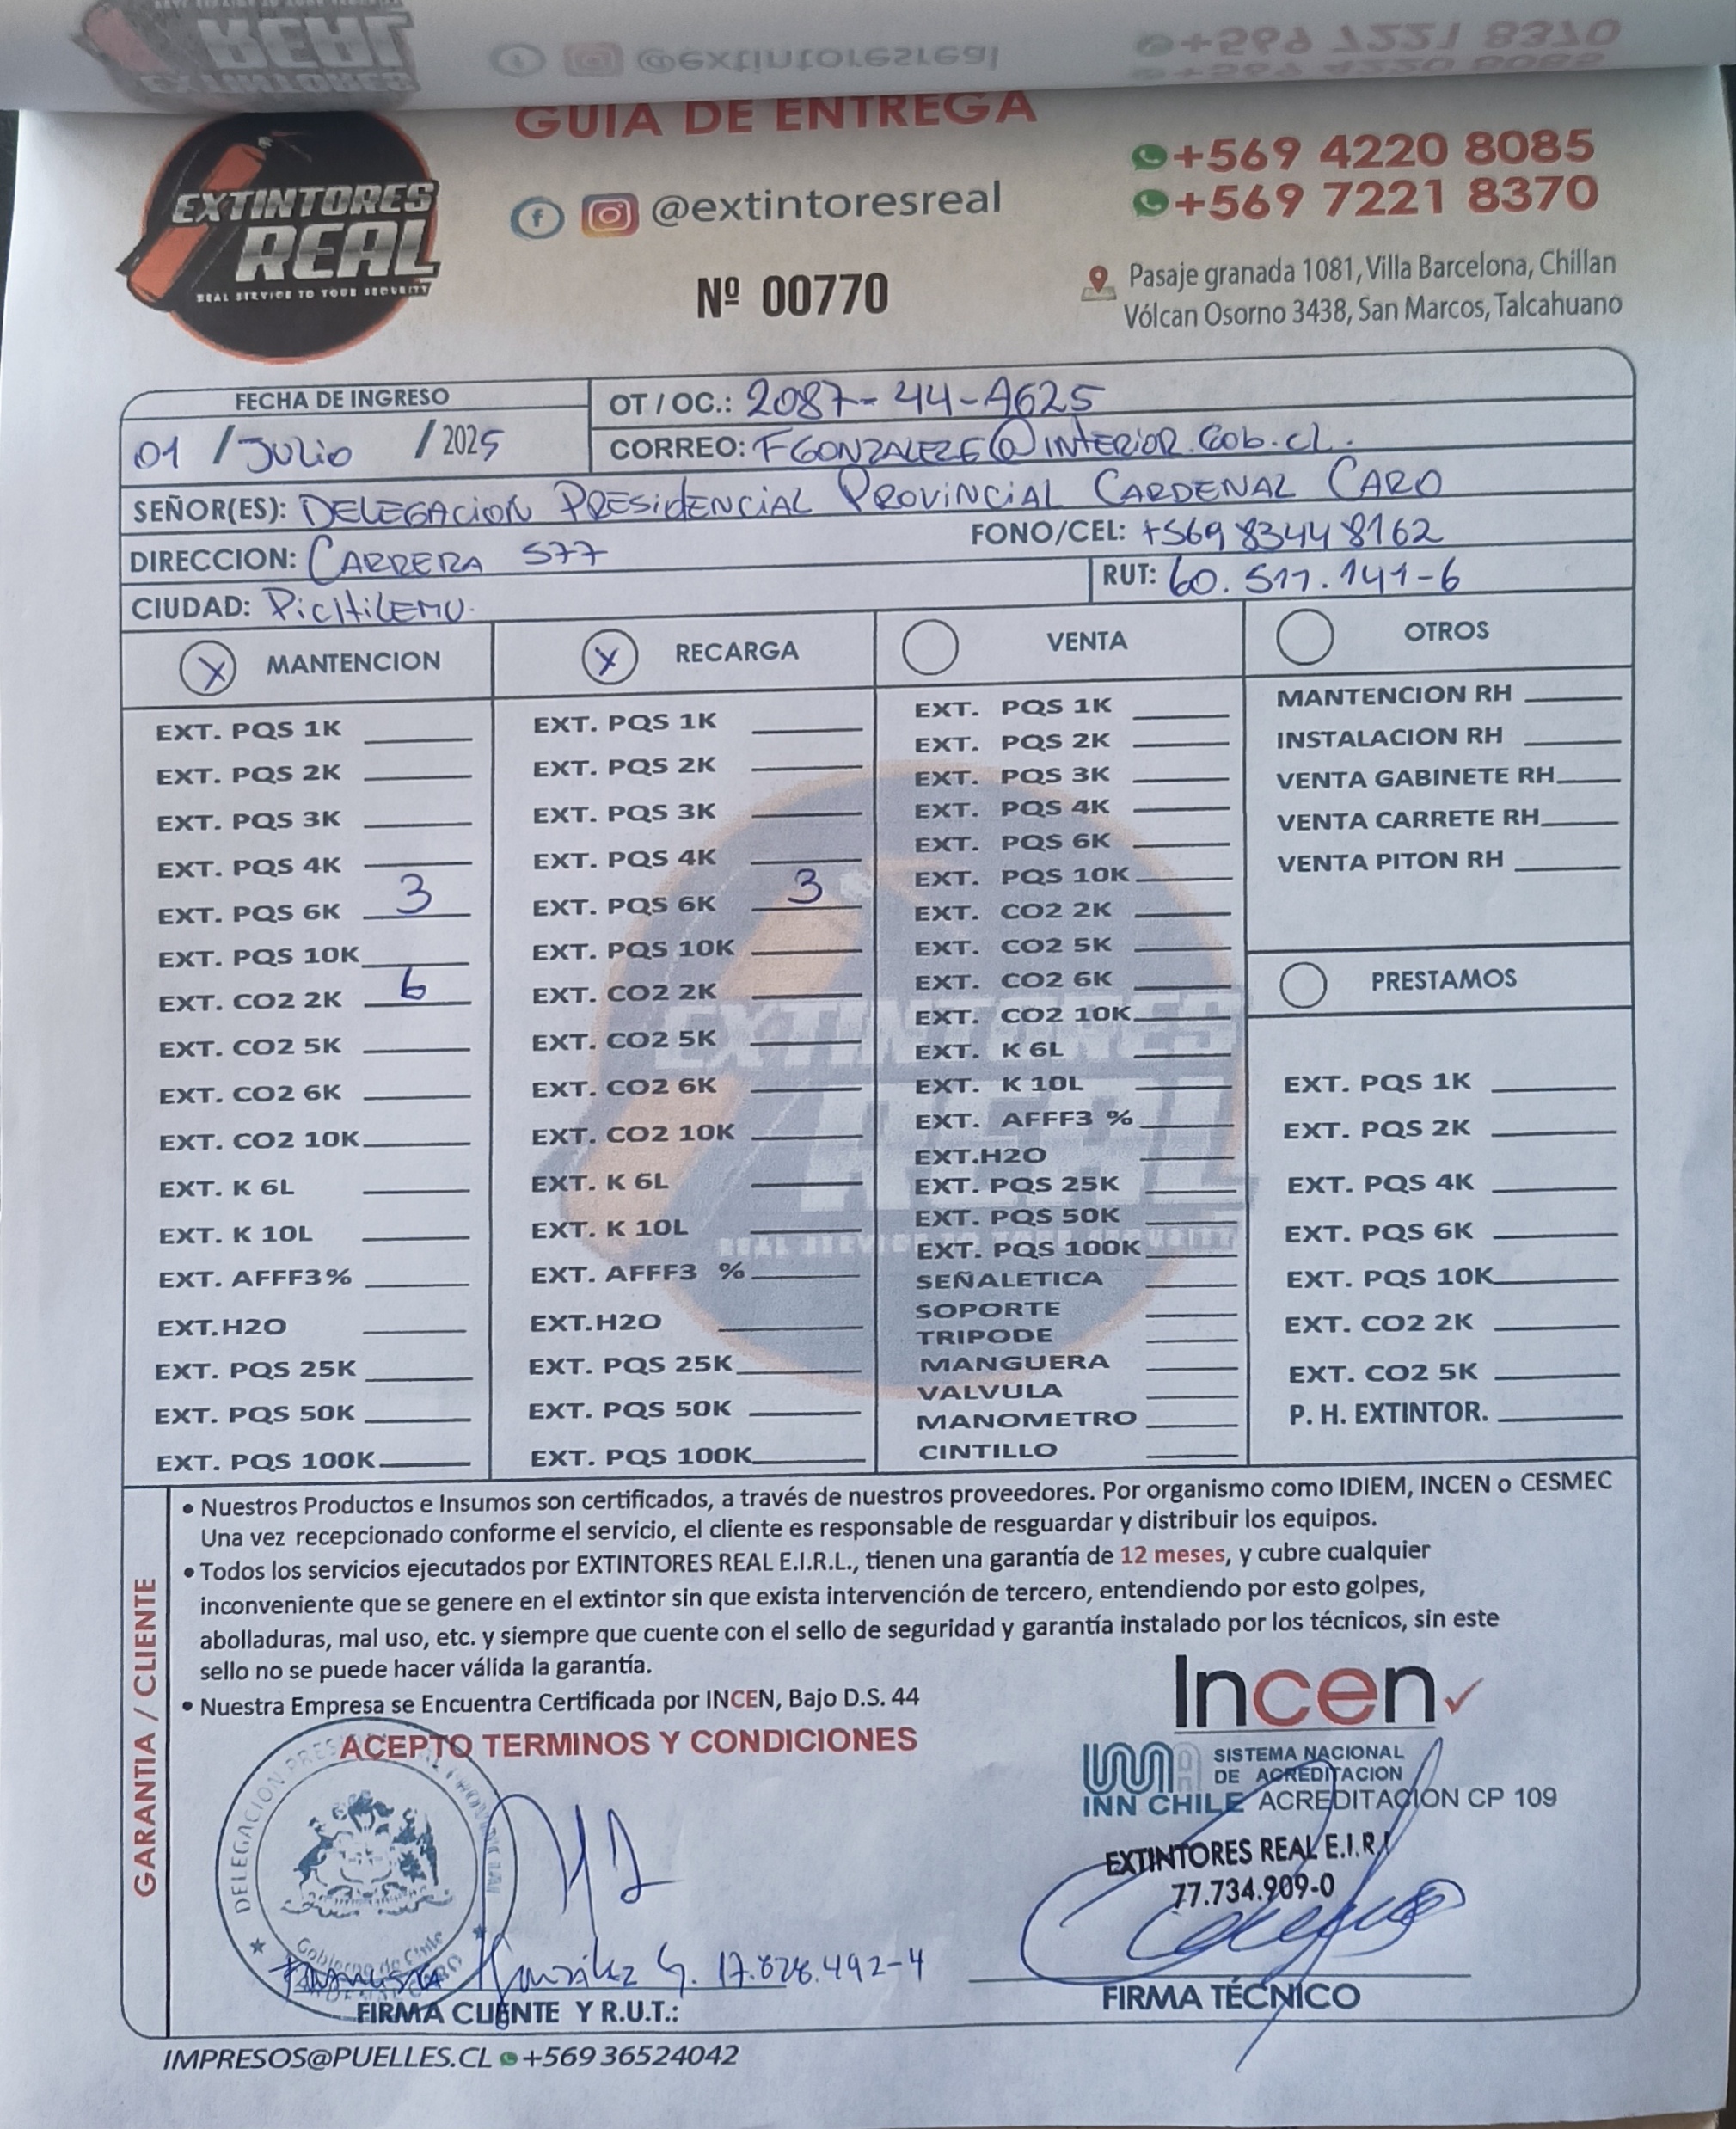 GUIA DE ENTREGA
EXTINTORES
REAL
REAL SERVICE TO YOUR SECURITY
@extintoresreal
+569 4220 8085
+569 7221 8370
Nº 00770
Pasaje granada 1081, Villa Barcelona, Chillan
Vólcan Osorno 3438, San Marcos, Talcahuano
FECHA DE INGRESO
01 / Julio / 2025
OT / OC.: 2087-44-AG25
CORREO: FGONZALEZG@INTERIOR.GOB.CL.
SEÑOR(ES): DELEGACION PRESIDENCIAL PROVINCIAL CARDENAL CARO
DIRECCION: CARRERA 577
FONO/CEL: +569 8344 8162
CIUDAD: PICHILEMU.
RUT: 60.511.141-6
X MANTENCION
EXT. PQS 1K
EXT. PQS 2K
EXT. PQS 3K
EXT. PQS 4K
EXT. PQS 6K 3
EXT. PQS 10K
EXT. CO2 2K 6
EXT. CO2 5K
EXT. CO2 6K
EXT. CO2 10K
EXT. K 6L
EXT. K 10L
EXT. AFFF3%
EXT.H2O
EXT. PQS 25K
EXT. PQS 50K
EXT. PQS 100K
X RECARGA
EXT. PQS 1K
EXT. PQS 2K
EXT. PQS 3K
EXT. PQS 4K
EXT. PQS 6K 3
EXT. PQS 10K
EXT. CO2 2K
EXT. CO2 5K
EXT. CO2 6K
EXT. CO2 10K
EXT. K 6L
EXT. K 10L
EXT. AFFF3 %
EXT.H2O
EXT. PQS 25K
EXT. PQS 50K
EXT. PQS 100K
VENTA
EXT. PQS 1K
EXT. PQS 2K
EXT. PQS 3K
EXT. PQS 4K
EXT. PQS 6K
EXT. PQS 10K
EXT. CO2 2K
EXT. CO2 5K
EXT. CO2 6K
EXT. CO2 10K
EXT. K 6L
EXT. K 10L
EXT. AFFF3 %
EXT.H2O
EXT. PQS 25K
EXT. PQS 50K
EXT. PQS 100K
SEÑALETICA
SOPORTE
TRIPODE
MANGUERA
VALVULA
MANOMETRO
CINTILLO
OTROS
MANTENCION RH
INSTALACION RH
VENTA GABINETE RH
VENTA CARRETE RH
VENTA PITON RH
PRESTAMOS
EXT. PQS 1K
EXT. PQS 2K
EXT. PQS 4K
EXT. PQS 6K
EXT. PQS 10K
EXT. CO2 2K
EXT. CO2 5K
P. H. EXTINTOR.
GARANTIA / CLIENTE
• Nuestros Productos e Insumos son certificados, a través de nuestros proveedores. Por organismo como IDIEM, INCEN o CESMEC
Una vez recepcionado conforme el servicio, el cliente es responsable de resguardar y distribuir los equipos.
• Todos los servicios ejecutados por EXTINTORES REAL E.I.R.L., tienen una garantía de 12 meses, y cubre cualquier
inconveniente que se genere en el extintor sin que exista intervención de tercero, entendiendo por esto golpes,
abolladuras, mal uso, etc. y siempre que cuente con el sello de seguridad y garantía instalado por los técnicos, sin este
sello no se puede hacer válida la garantía.
• Nuestra Empresa se Encuentra Certificada por INCEN, Bajo D.S. 44
ACEPTO TERMINOS Y CONDICIONES
Incen
INN CHILE
SISTEMA NACIONAL
DE ACREDITACION
ACREDITACIÓN CP 109
EXTINTORES REAL E.I.R.L
77.734.909-0
DELEGACION PRESIDENCIAL PROVINCIAL
Gobierno de Chile
González G. 17.828.492-4
FIRMA CLIENTE Y R.U.T.:
FIRMA TÉCNICO
IMPRESOS@PUELLES.CL +569 36524042